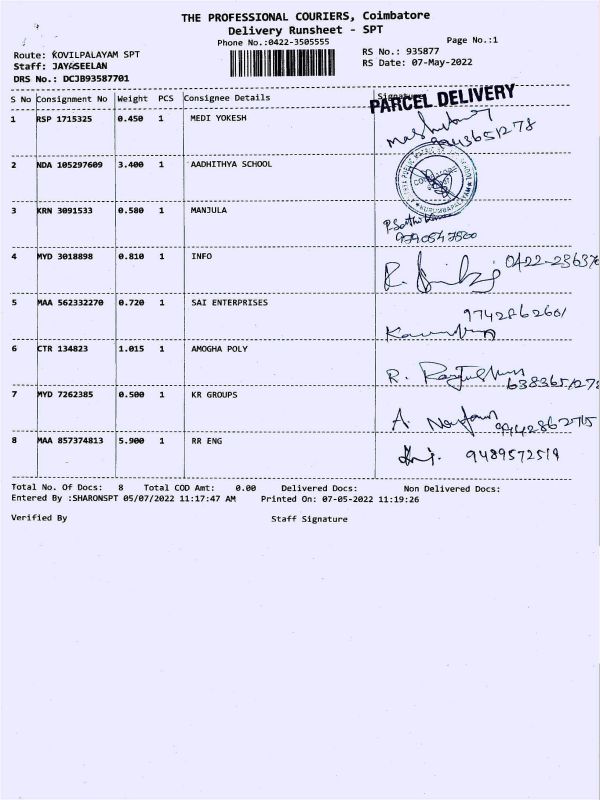 THE PROFESSIONAL COURIERS, Coimbatore
Delivery Runsheet - SPT
Phone No.:0422-3505555
Page No.:1
Route: KOVILPALAYAM SPT
RS No.: 935877
Staff: JAYASEELAN
RS Date: 07-May-2022
DRS No.: DCJB93587701
S No Consignment No Weight PCS Consignee Details Signature
PARCEL DELIVERY
1 RSP 1715325 0.450 1 MEDI YOKESH
2 NDA 105297609 3.400 1 AADHITHYA SCHOOL
3 KRN 3091533 0.580 1 MANJULA
4 MYD 3018898 0.810 1 INFO
5 MAA 562332270 0.720 1 SAI ENTERPRISES
9742862601
6 CTR 134823 1.015 1 AMOGHA POLY
R.
7 MYD 7262385 0.500 1 KR GROUPS
A
8 MAA 857374813 5.900 1 RR ENG
9489572519
Total No. Of Docs: 8 Total COD Amt: 0.00 Delivered Docs: Non Delivered Docs:
Entered By :SHARONSPT 05/07/2022 11:17:47 AM Printed On: 07-05-2022 11:19:26
Verified By Staff Signature